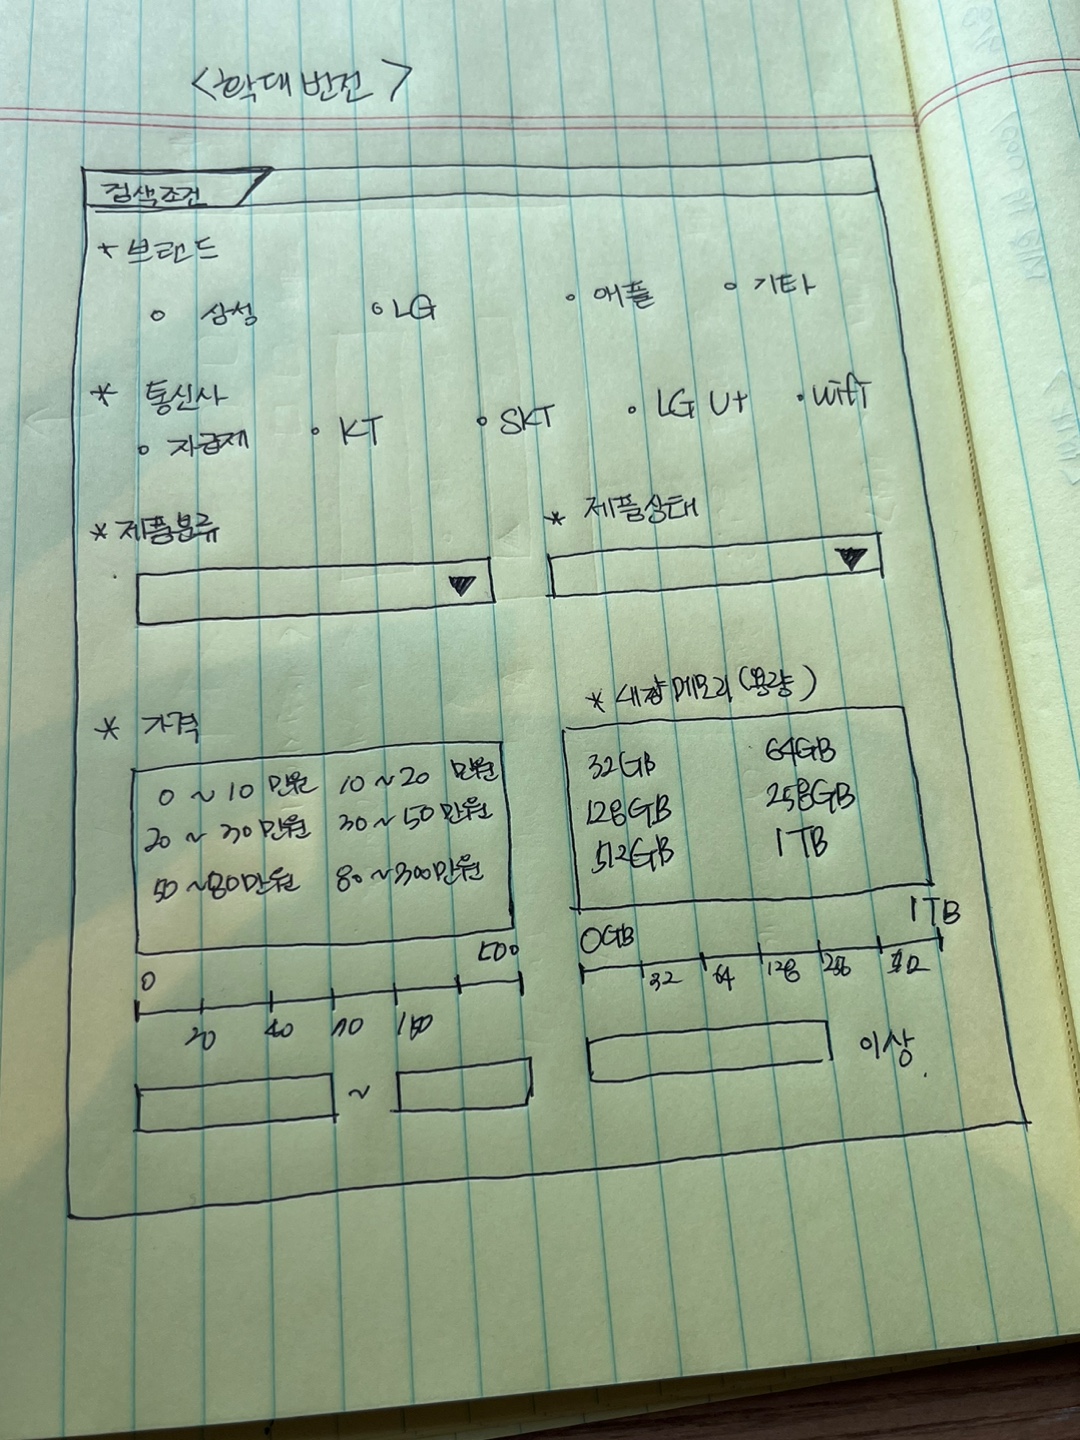 <확대 번전>
검색조건
* 브랜드
삼성 LG 애플 기타
* 통신사
자급제 KT SKT LG U+ wifi
* 제품분류 * 제품상태
* 가격 * 내장메모리 (용량)
0 ~ 10 만원 10 ~ 20 만원
20 ~ 30만원 30 ~ 50만원
50 ~ 80만원 80 ~ 300만원
32GB 64GB
128GB 258GB
512GB 1TB
0
20 40 150
0GB 1TB
32 64 128 256
~
이상.